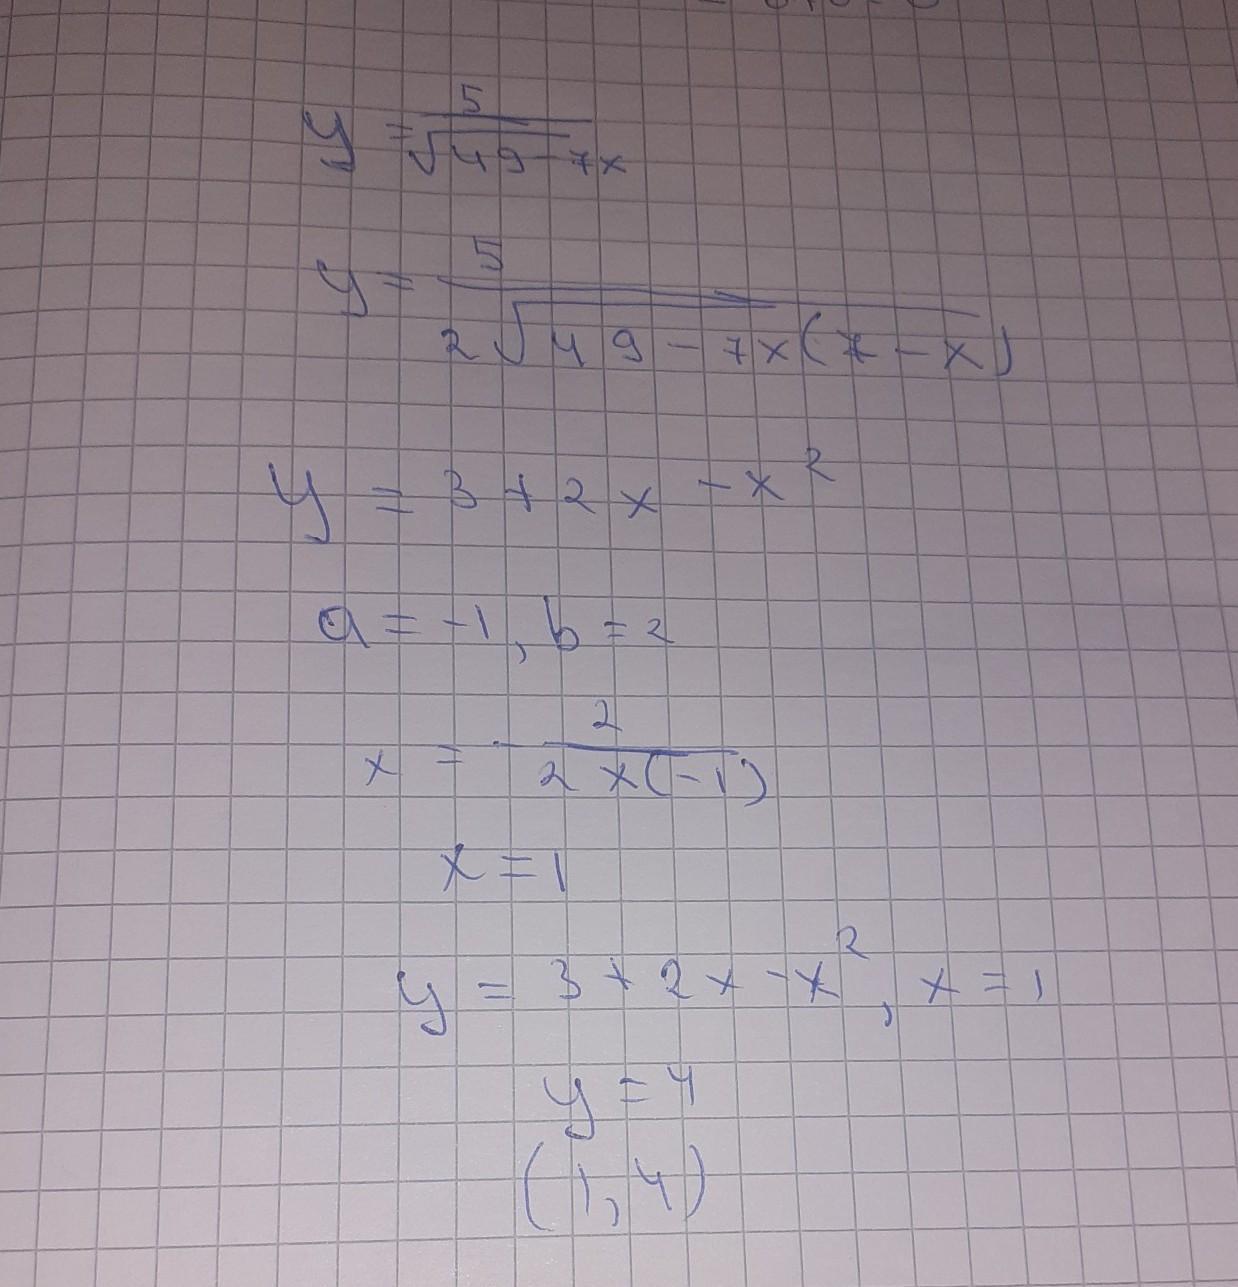 y = 5/√(49-7x)
y = 5/(2√(49-7x(7-x)))
y = 3 + 2x - x²
a = -1, b = 2
x = - 2/(2x(-1))
x = 1
y = 3 + 2x - x², x = 1
y = 4
(1, 4)